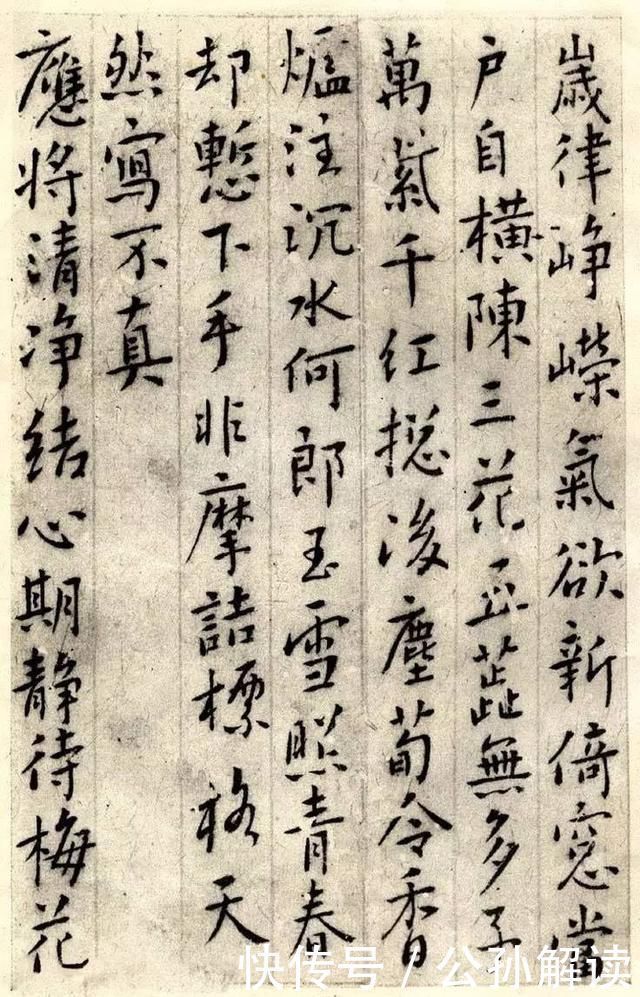 歲律峥嶸氣欲新倚窓當
户自橫陳三花五蕋無多子
萬紫千紅揔後塵荀令香
爐注沉水何郎玉雪照青春
却慙下手非摩詰標格天
然寫不真
應將清净結心期静待梅花
快传号 / 公孙解读